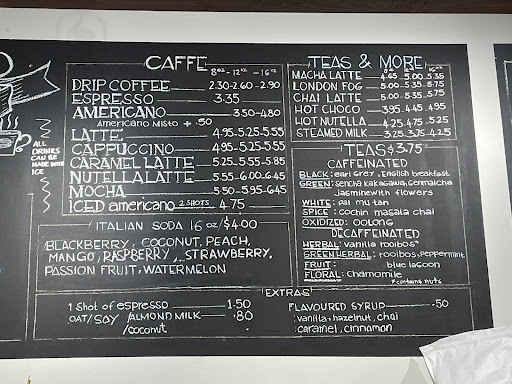 CAFFE
8oz - 12oz - 16oz
DRIP COFFEE 2.30-2.60-2.90
ESPRESSO 3.35
AMERICANO 3.50-4.80
AMERICANO MISTO + .50
LATTE 4.95-5.25-5.55
CAPPUCCINO 4.95-5.25-5.55
CARAMEL LATTE 5.25-5.55-5.85
NUTELLA LATTE 5.55-6.00-6.45
MOCHA 5.50-5.95-6.45
ICED americano 2 SHOTS 4.75
ALL
DRINKS
CAN BE
MADE WITH
ICE
ITALIAN SODA 16 oz/$4.00
BLACKBERRY, COCONUT, PEACH,
MANGO, RASPBERRY, STRAWBERRY,
PASSION FRUIT, WATERMELON
TEAS & MORE
MACHA LATTE 4.65 5.00 5.35
LONDON FOG 5.00 5.35 5.75
CHAI LATTE 5.00 5.35 5.75
HOT CHOCO 3.95 4.45 4.95
HOT NUTELLA 4.25 4.75 5.25
STEAMED MILK 3.25 3.75 4.25
TEAS $3.75
CAFFEINATED
BLACK: earl Grey, English breakfast
GREEN: sencha kakagawa, Genmaicha
Jasmine with flowers
WHITE: Pai mu tan
SPICE: cochin masala chai
OXIDIZED: OOLONG
DECAFFEINATED
HERBAL: vanilla rooibos*
GREEN HERBAL: rooibos, peppermint
FRUIT: blue lagoon
FLORAL: chamomile
*contains nuts
EXTRAS
1 Shot of espresso 1.50
OAT/SOY /ALMOND MILK .80
/coconut
FLAVOURED SYRUP .50
vanilla, hazelnut, chai
caramel, cinnamon